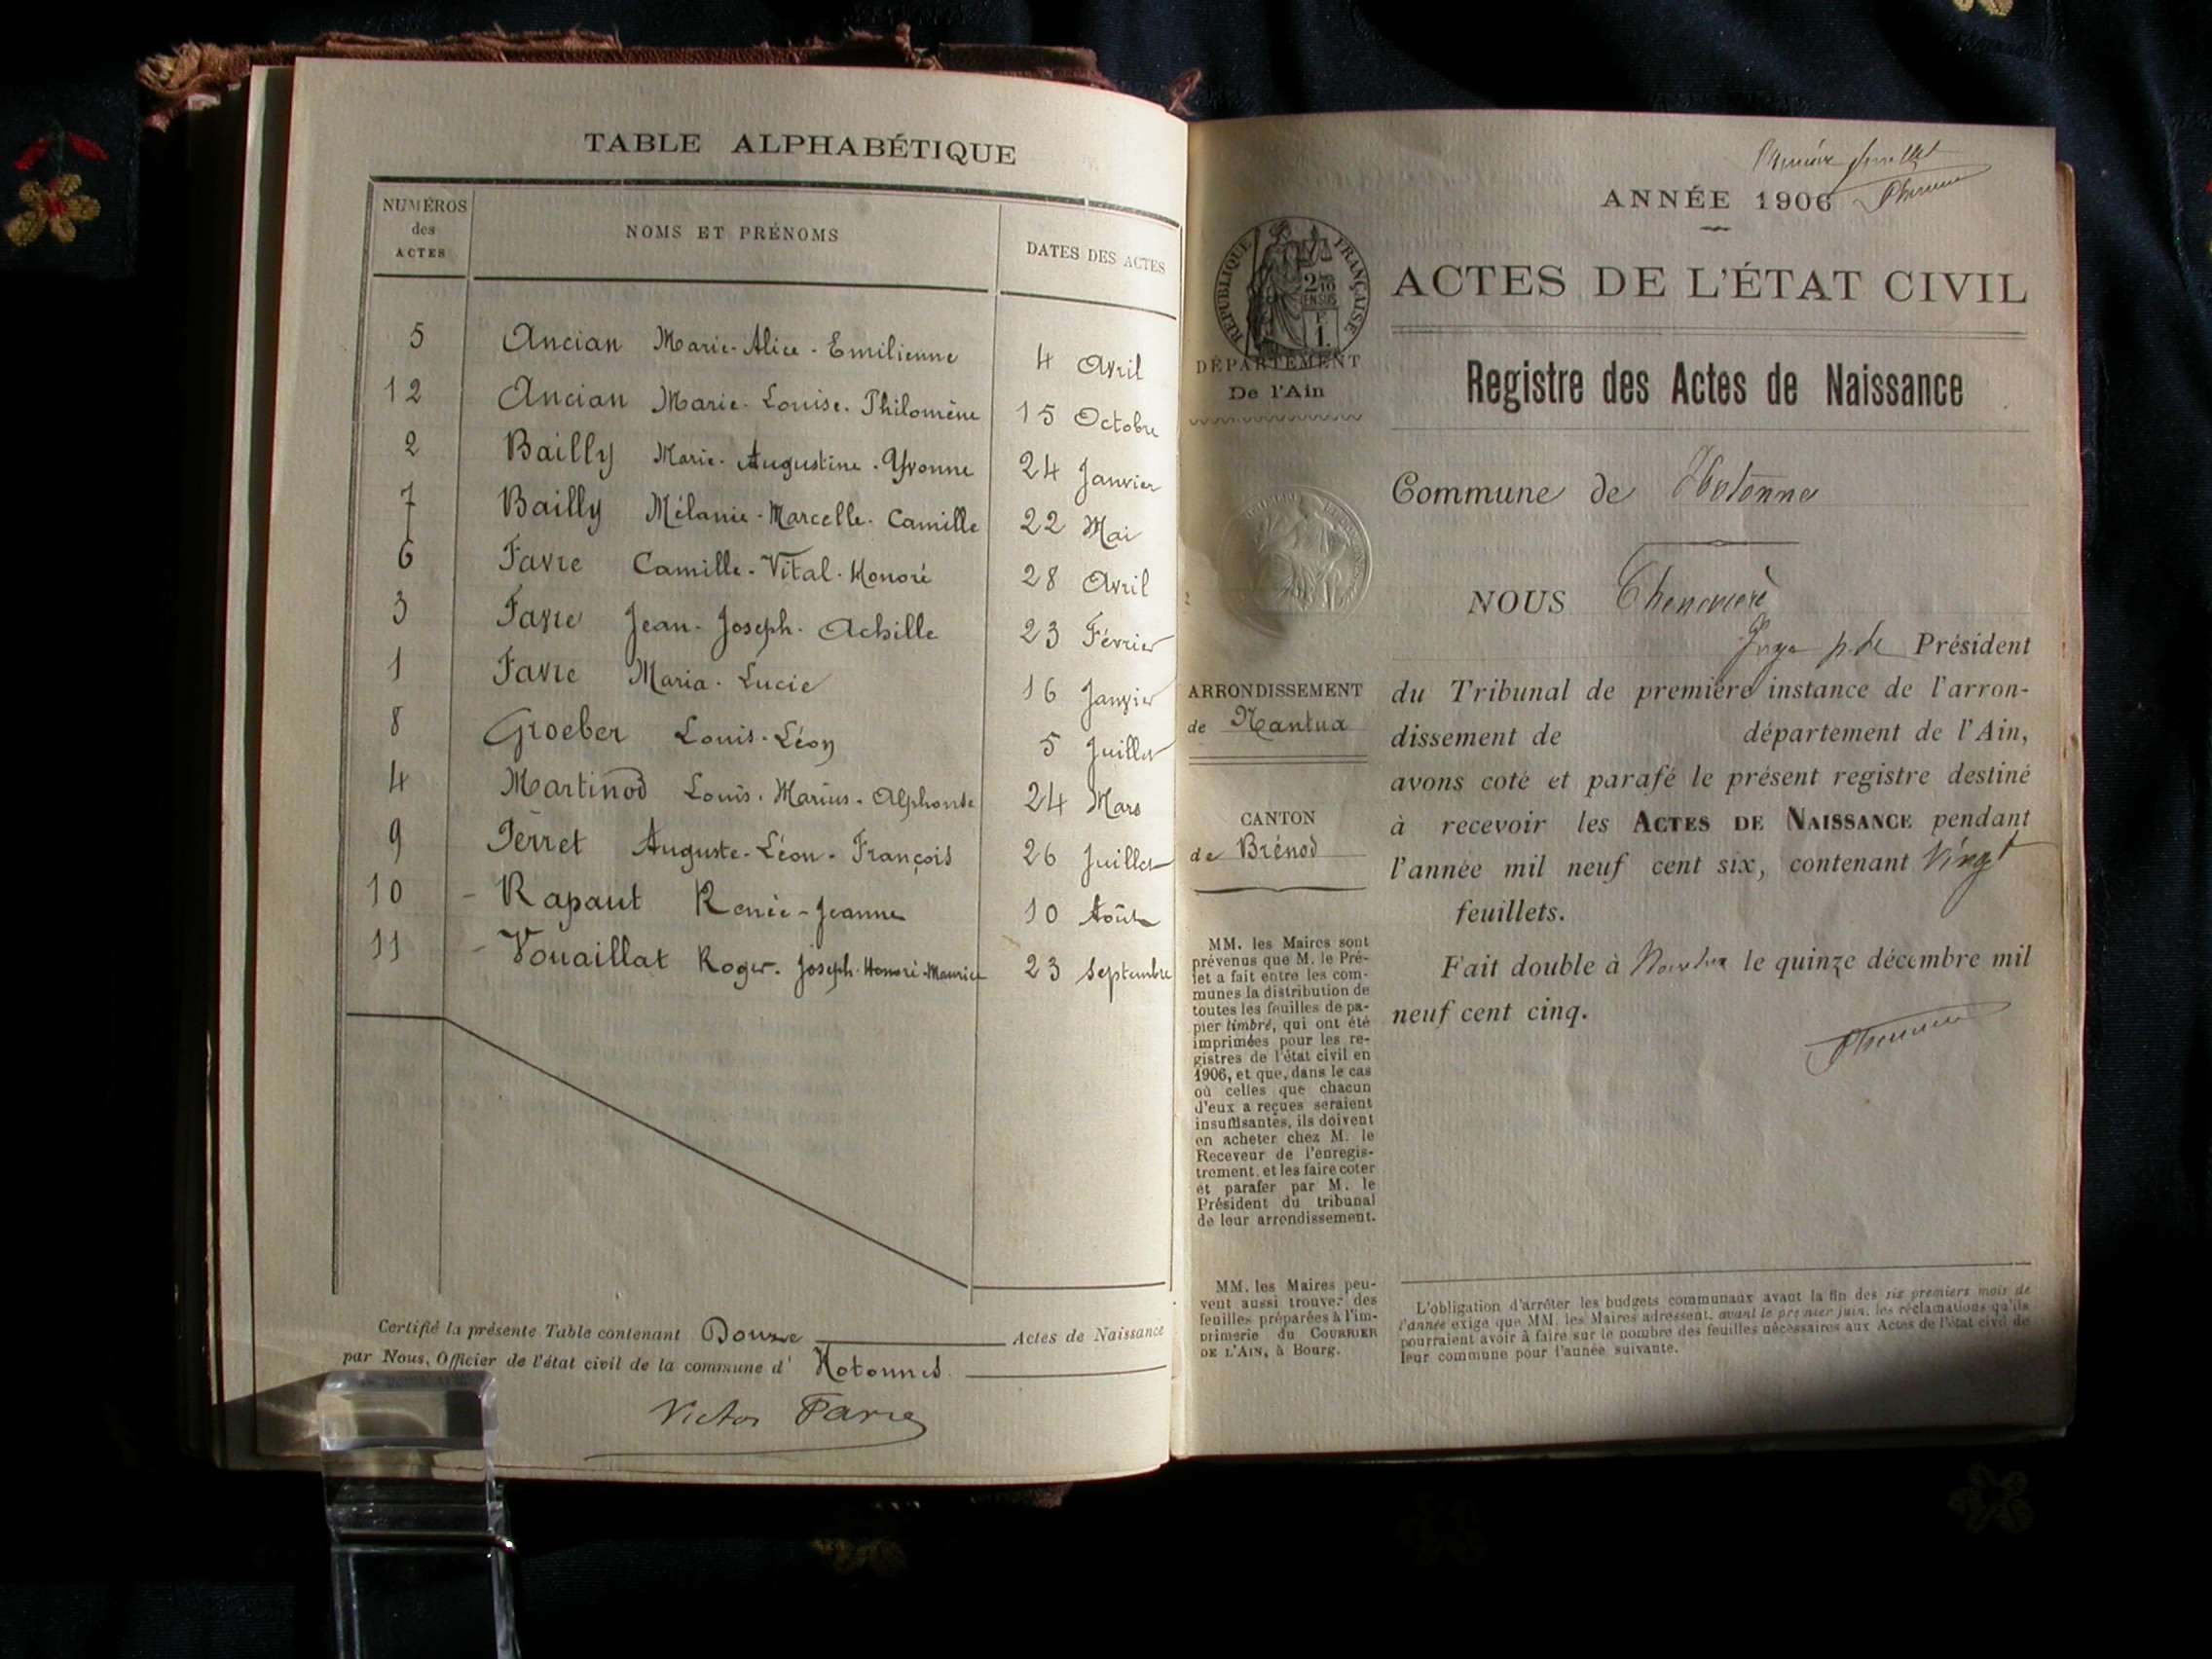 TABLE ALPHABÉTIQUE
NUMÉROS des ACTES NOMS ET PRÉNOMS DATES DES ACTES
5 Ancian Marie-Alice-Emilienne 4 Avril
12 Ancian Marie-Louise-Philomène 15 Octobre
2 Bailly Marie-Augustine-Yvonne 24 Janvier
7 Bailly Mélanie-Marcelle-Camille 22 Mai
6 Favre Camille-Vital-Honoré 28 Avril
3 Favre Jean-Joseph-Achille 23 Février
1 Favre Maria-Lucie 16 Janvier
8 Groeber Louis-Léon 5 Juillet
4 Martinod Louis-Marius-Alphonse 24 Mars
9 Perret Auguste-Léon-François 26 Juillet
10 - Rapaut Renée-Jeanne 10 Août
11 - Vouaillat Roger-Joseph-Honoré-Maurice 23 Septembre
Certifié la présente Table contenant Douze Actes de Naissance
par Nous, Officier de l'état civil de la commune d' Hotonnes
Victor Favre
Première feuillet
ANNÉE 1906
RÉPUBLIQUE FRANÇAISE
2/10 EN SUS
F.
1.
DÉPARTEMENT
De l'Ain
ARRONDISSEMENT
de Nantua
CANTON
de Brénod
MM. les Maires sont
prévenus que M. le Pré-
fet a fait entre les com-
munes la distribution de
toutes les feuilles de pa-
pier timbré, qui ont été
imprimées pour les re-
gistres de l'état civil en
1906, et que, dans le cas
où celles que chacun
d'eux a reçues seraient
insuffisantes, ils doivent
en acheter chez M. le
Receveur de l'enregis-
trement, et les faire coter
et parafer par M. le
Président du tribunal
de leur arrondissement.
MM. les Maires peu-
vent aussi trouver des
feuilles préparées à l'im-
primerie du COURRIER
DE L'AIN, à Bourg.
ACTES DE L'ÉTAT CIVIL
Registre des Actes de Naissance
Commune de Hotonnes
NOUS
Juge p. le Président
du Tribunal de première instance de l'arron-
dissement de département de l'Ain,
avons coté et parafé le présent registre destiné
à recevoir les ACTES DE NAISSANCE pendant
l'année mil neuf cent six, contenant Vingt
feuillets.
Fait double à Nantua le quinze décembre mil
neuf cent cinq.
L'obligation d'arrêter les budgets communaux avant la fin des six premiers mois de
l'année exige que MM. les Maires adressent, avant le premier juin, les réclamations qu'ils
pourraient avoir à faire sur le nombre des feuilles nécessaires aux Actes de l'état civil de
leur commune pour l'année suivante.